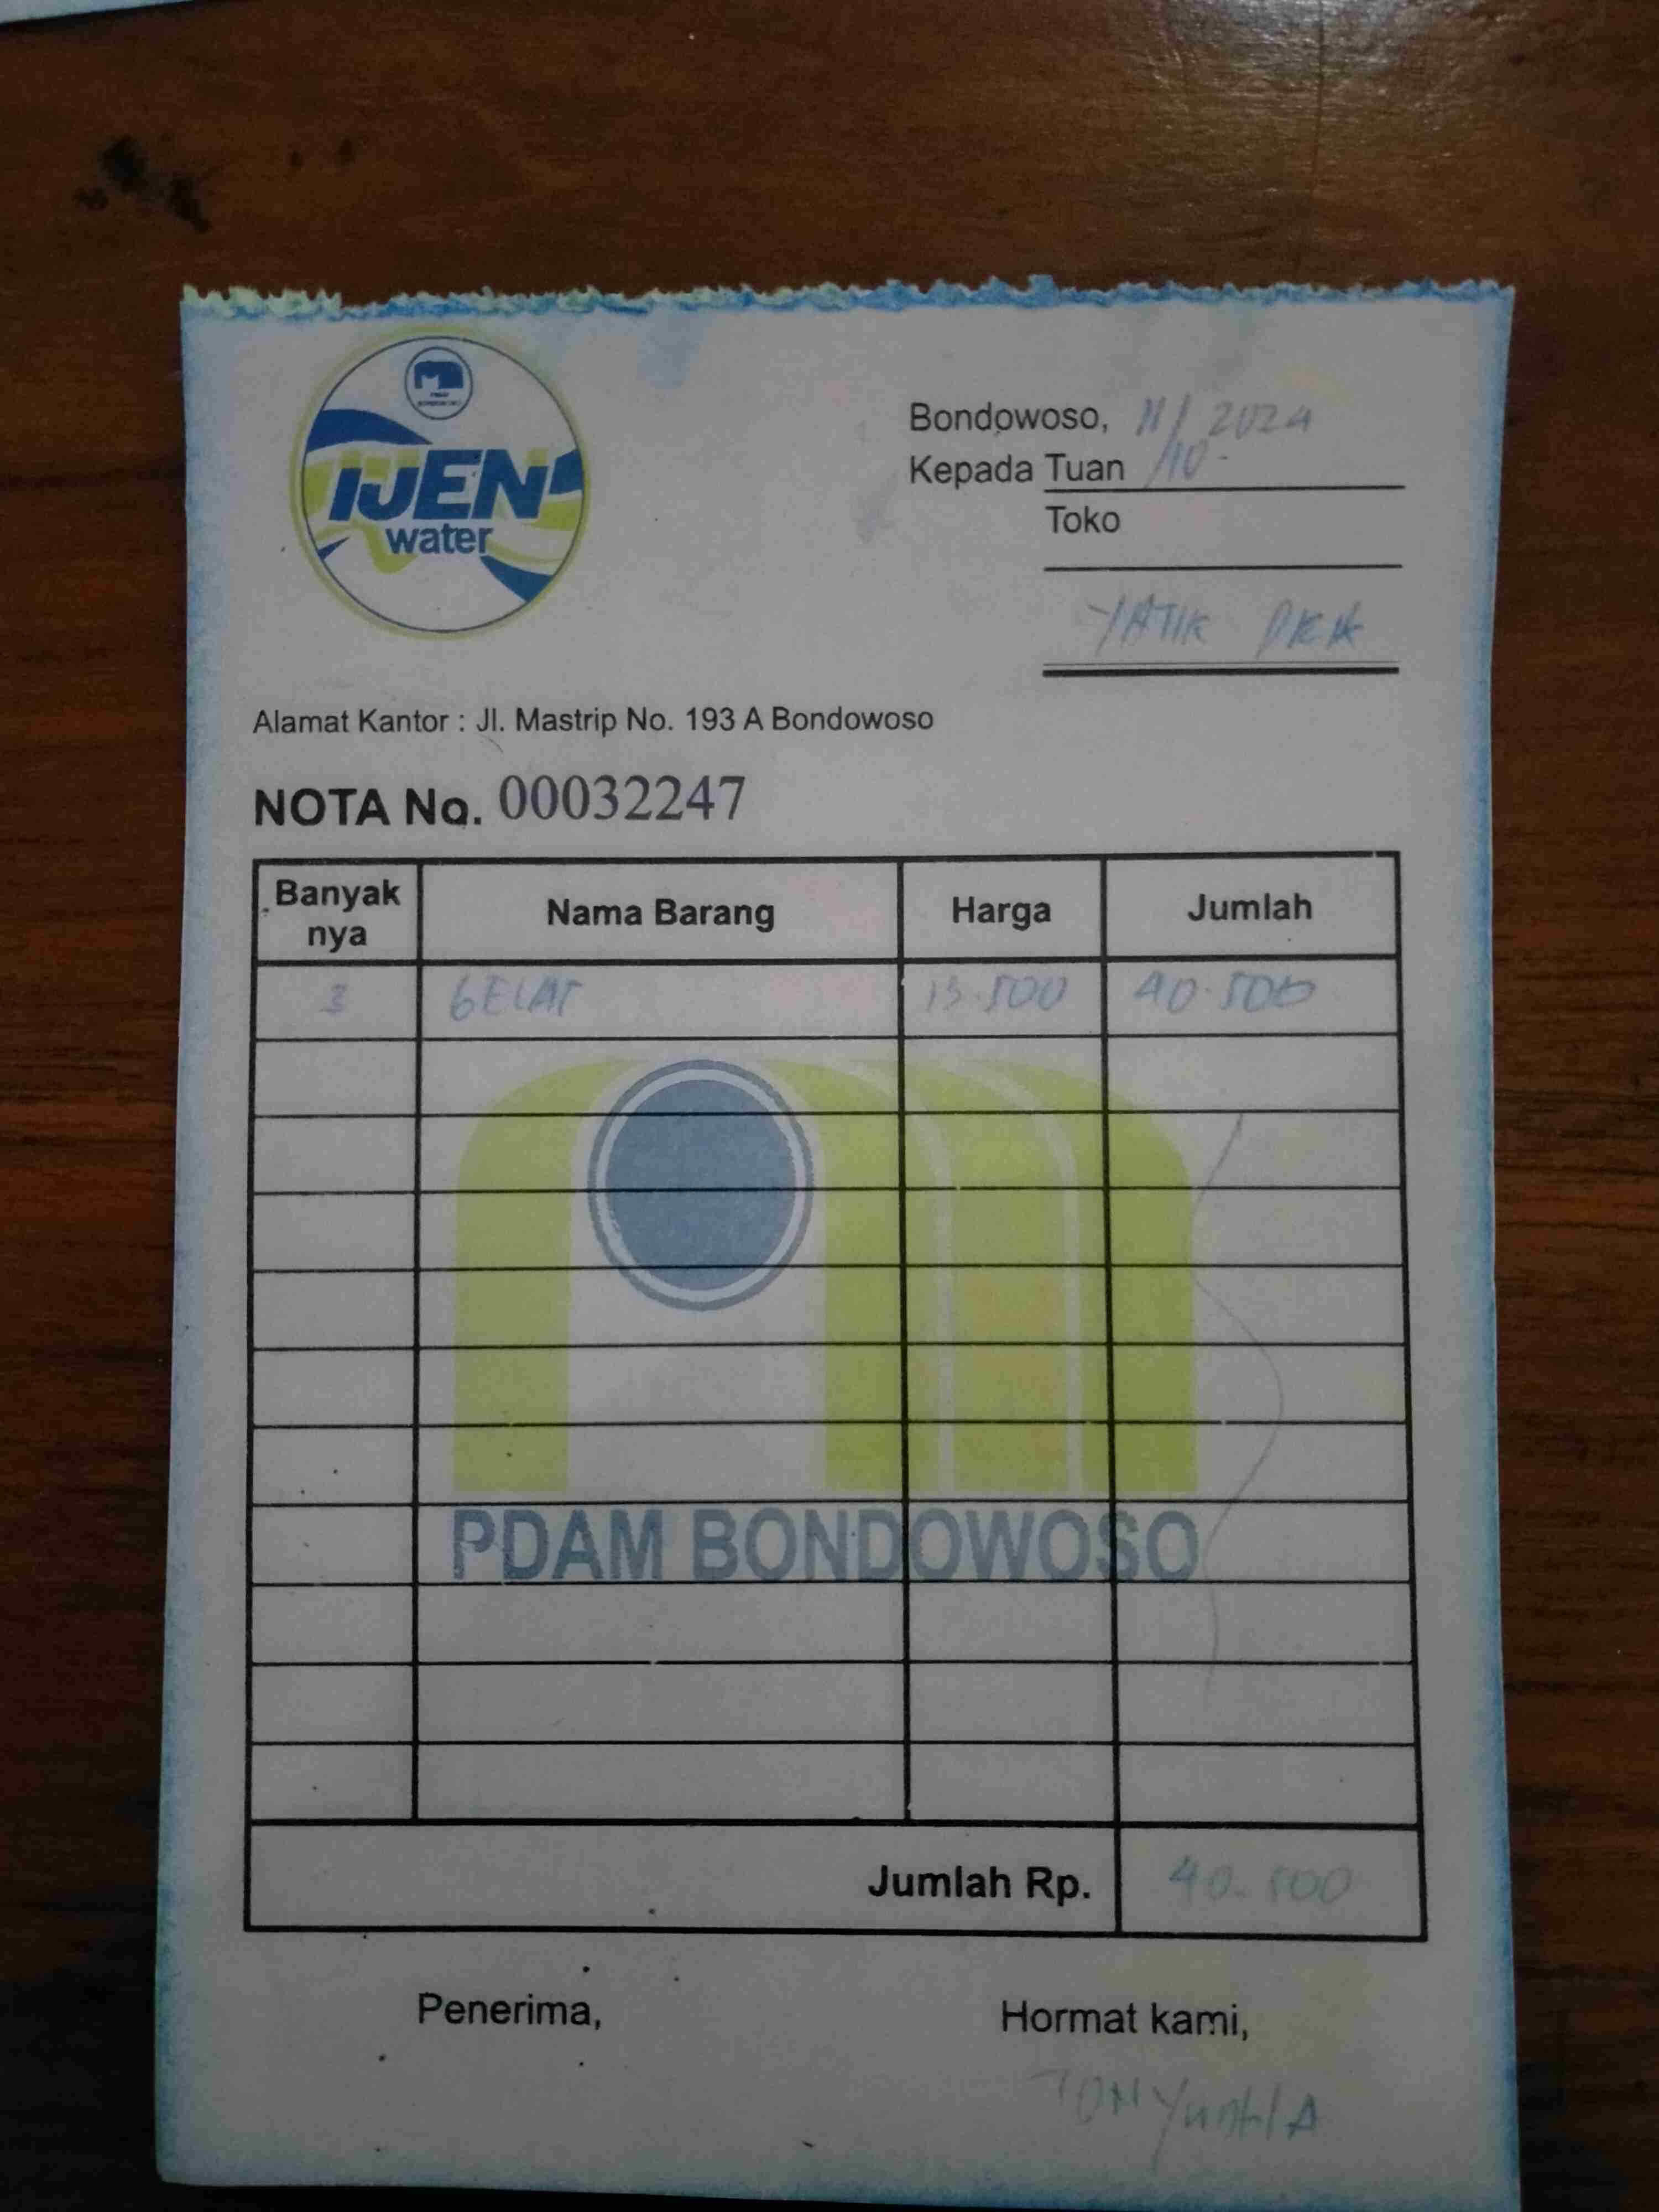 IJEN
water
Bondowoso, 11/10 - 2024
Kepada Tuan
Toko
YATIK
Alamat Kantor : Jl. Mastrip No. 193 A Bondowoso
NOTA No. 00032247
Banyak nya Nama Barang Harga Jumlah
3 GELAS 13.500 40.500
PDAM BONDOWOSO
Jumlah Rp. 40.500
Penerima, Hormat kami,